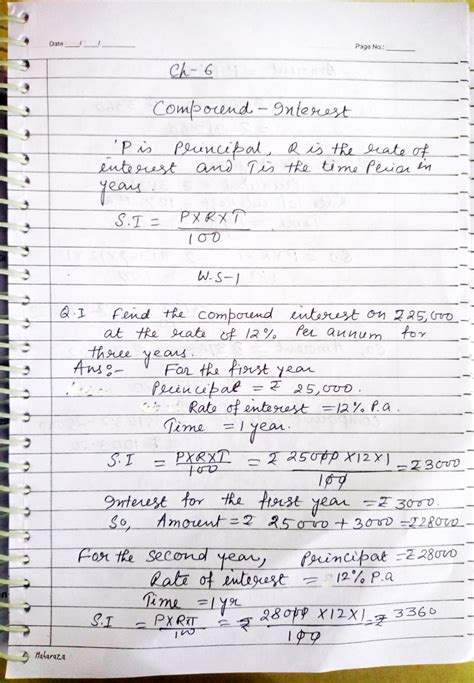 Date ___/___/___ Page No.: ______
Ch-6
Compound - Interest
'P is Principal, R is the rate of
interest and T is the time Period in
years.
S.I = PXRXT
100
W.S-1
Q.I Find the compound interest on ₹25,000
at the rate of 12% Per annum for
three years.
Ans:- For the first year
Principal = ₹ 25,000.
Rate of interest = 12% P.a.
Time = 1 year.
S.I = PXRXT/100 = ₹ 25000 X12X1/100 = ₹3000
Interest for the first year = ₹ 3000.
So, Amount = ₹ 25000 + 3000 = ₹28000
For the second year, Principal = ₹ 28000
Rate of interest = 12% P.a
Time = 1 yr
S.I = PXRXT/100 = ₹ 28000 X12X1/100 = ₹ 3360
Maharaza